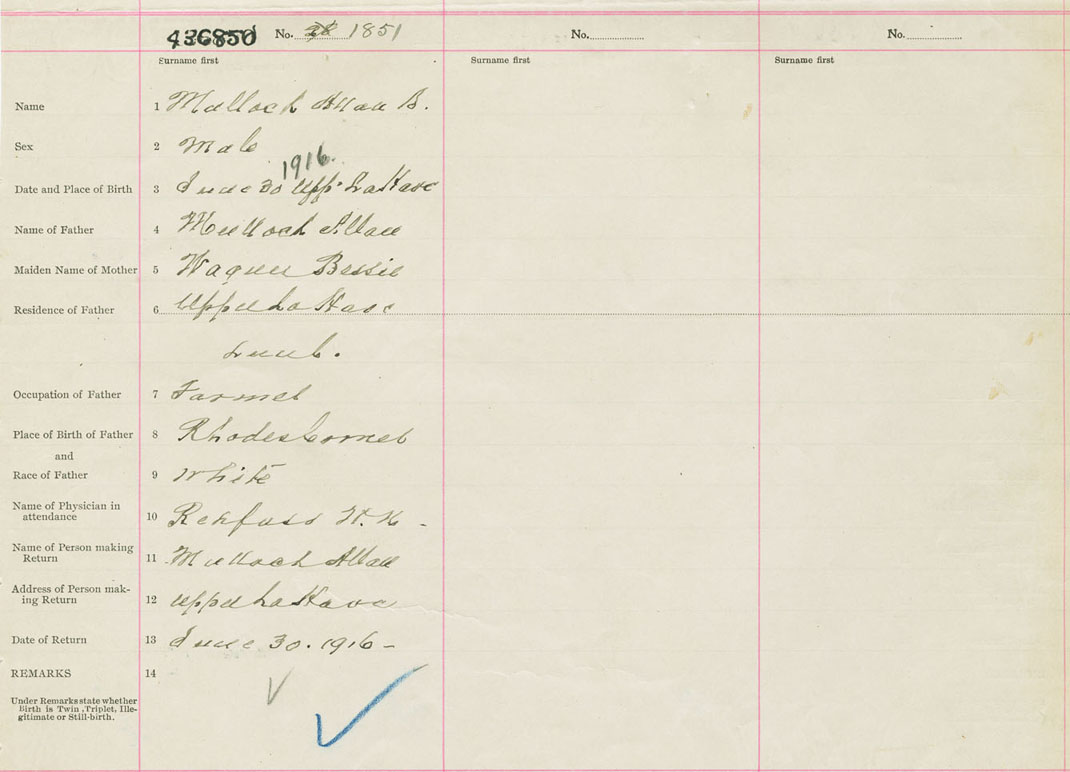 436850 No. 1851 No. No.
Surname first Surname first Surname first
Name 1 Mulloch Allan B.
Sex 2 Male
1916.
Date and Place of Birth 3 June 30 Upp. LaHave
Name of Father 4 Mulloch Allan
Maiden Name of Mother 5 Wagner Bessie
Residence of Father 6 Upper LaHave
Lunb.
Occupation of Father 7 Farmer
Place of Birth of Father 8 Rhodes Corner
and
Race of Father 9 White
Name of Physician in
attendance 10 Rehfuss W. N.
Name of Person making
Return 11 Mulloch Allan
Address of Person mak-
ing Return 12 Upper LaHave
Date of Return 13 June 30. 1916 -
REMARKS 14
Under Remarks state whether
Birth is Twin, Triplet, Ille-
gitimate or Still-birth.